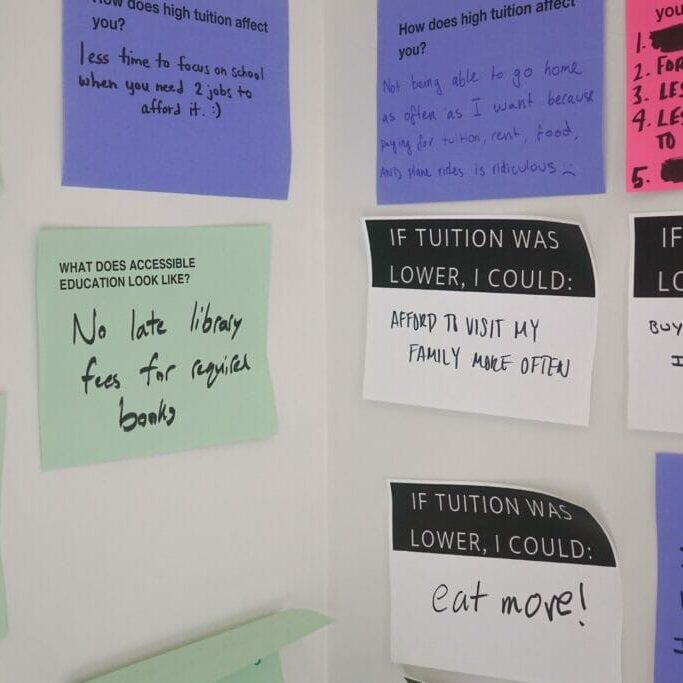 How does high tuition affect
you?
less time to focus on school
when you need 2 jobs to
afford it. :)
How does high tuition affect
you?
Not being able to go home
as often as I want because
paying for tuition, rent, food,
AND plane rides is ridiculous
you
1.
2. FOR
3. LES
4. LES
TO
5.
WHAT DOES ACCESSIBLE
EDUCATION LOOK LIKE?
No late library
fees for required
books
IF TUITION WAS
LOWER, I COULD:
AFFORD TO VISIT MY
FAMILY MORE OFTEN
IF
LO
BUY
IF TUITION WAS
LOWER, I COULD:
eat more!